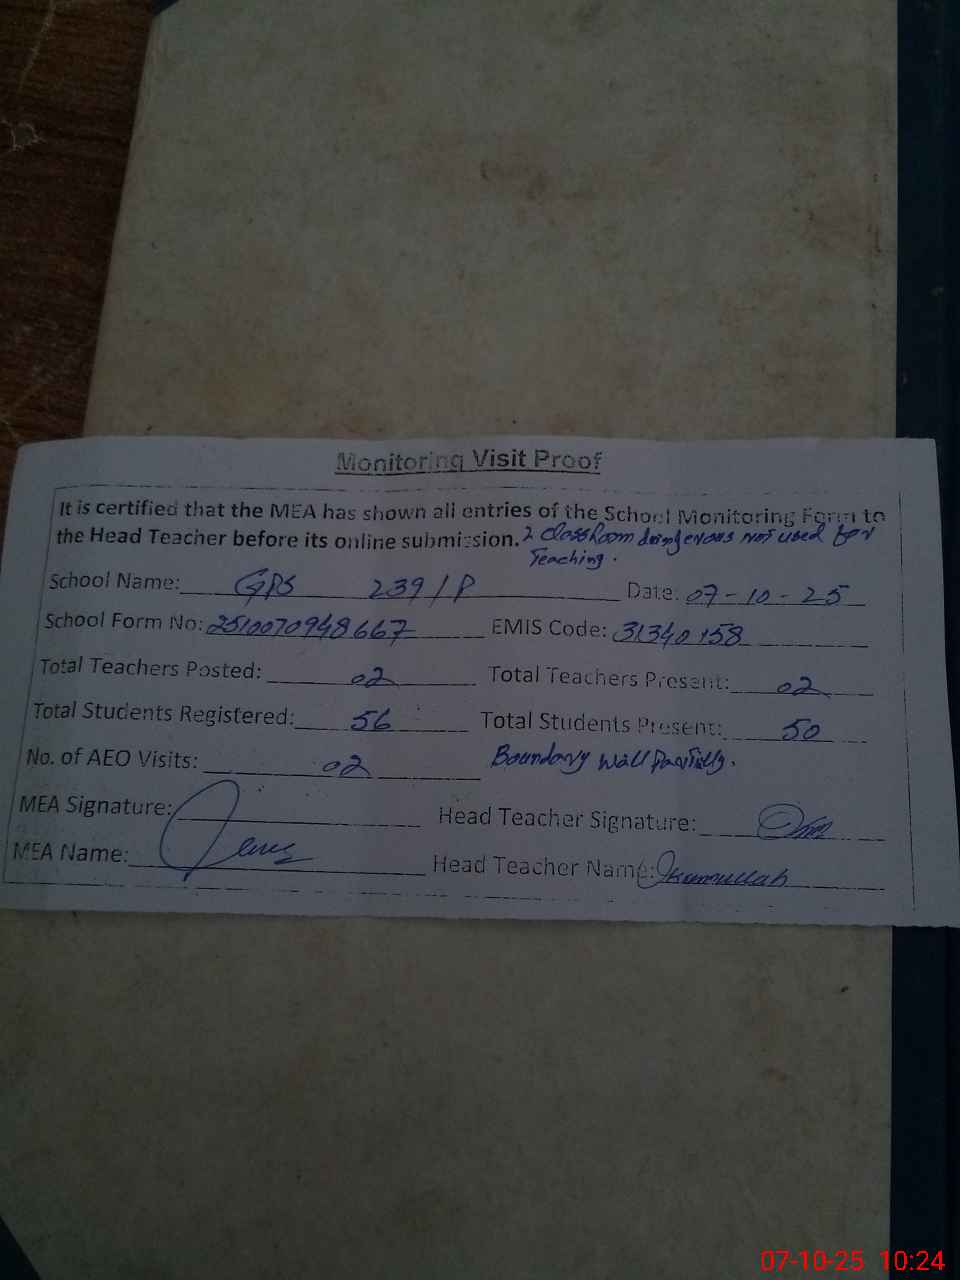 Monitoring Visit Proof
It is certified that the MEA has shown all entries of the School Monitoring Form to
the Head Teacher before its online submission. 2 classRoom dangerous not used for
Teaching.
School Name: GPS 239/P Date: 07-10-25
School Form No: 2510070948667 EMIS Code: 31340158
Total Teachers Posted: 02 Total Teachers Present: 02
Total Students Registered: 56 Total Students Present: 50
No. of AEO Visits: 02 Boundary wall partially.
MEA Signature: Head Teacher Signature:
MEA Name: Head Teacher Name: Ikramullah
07-10-25 10:24